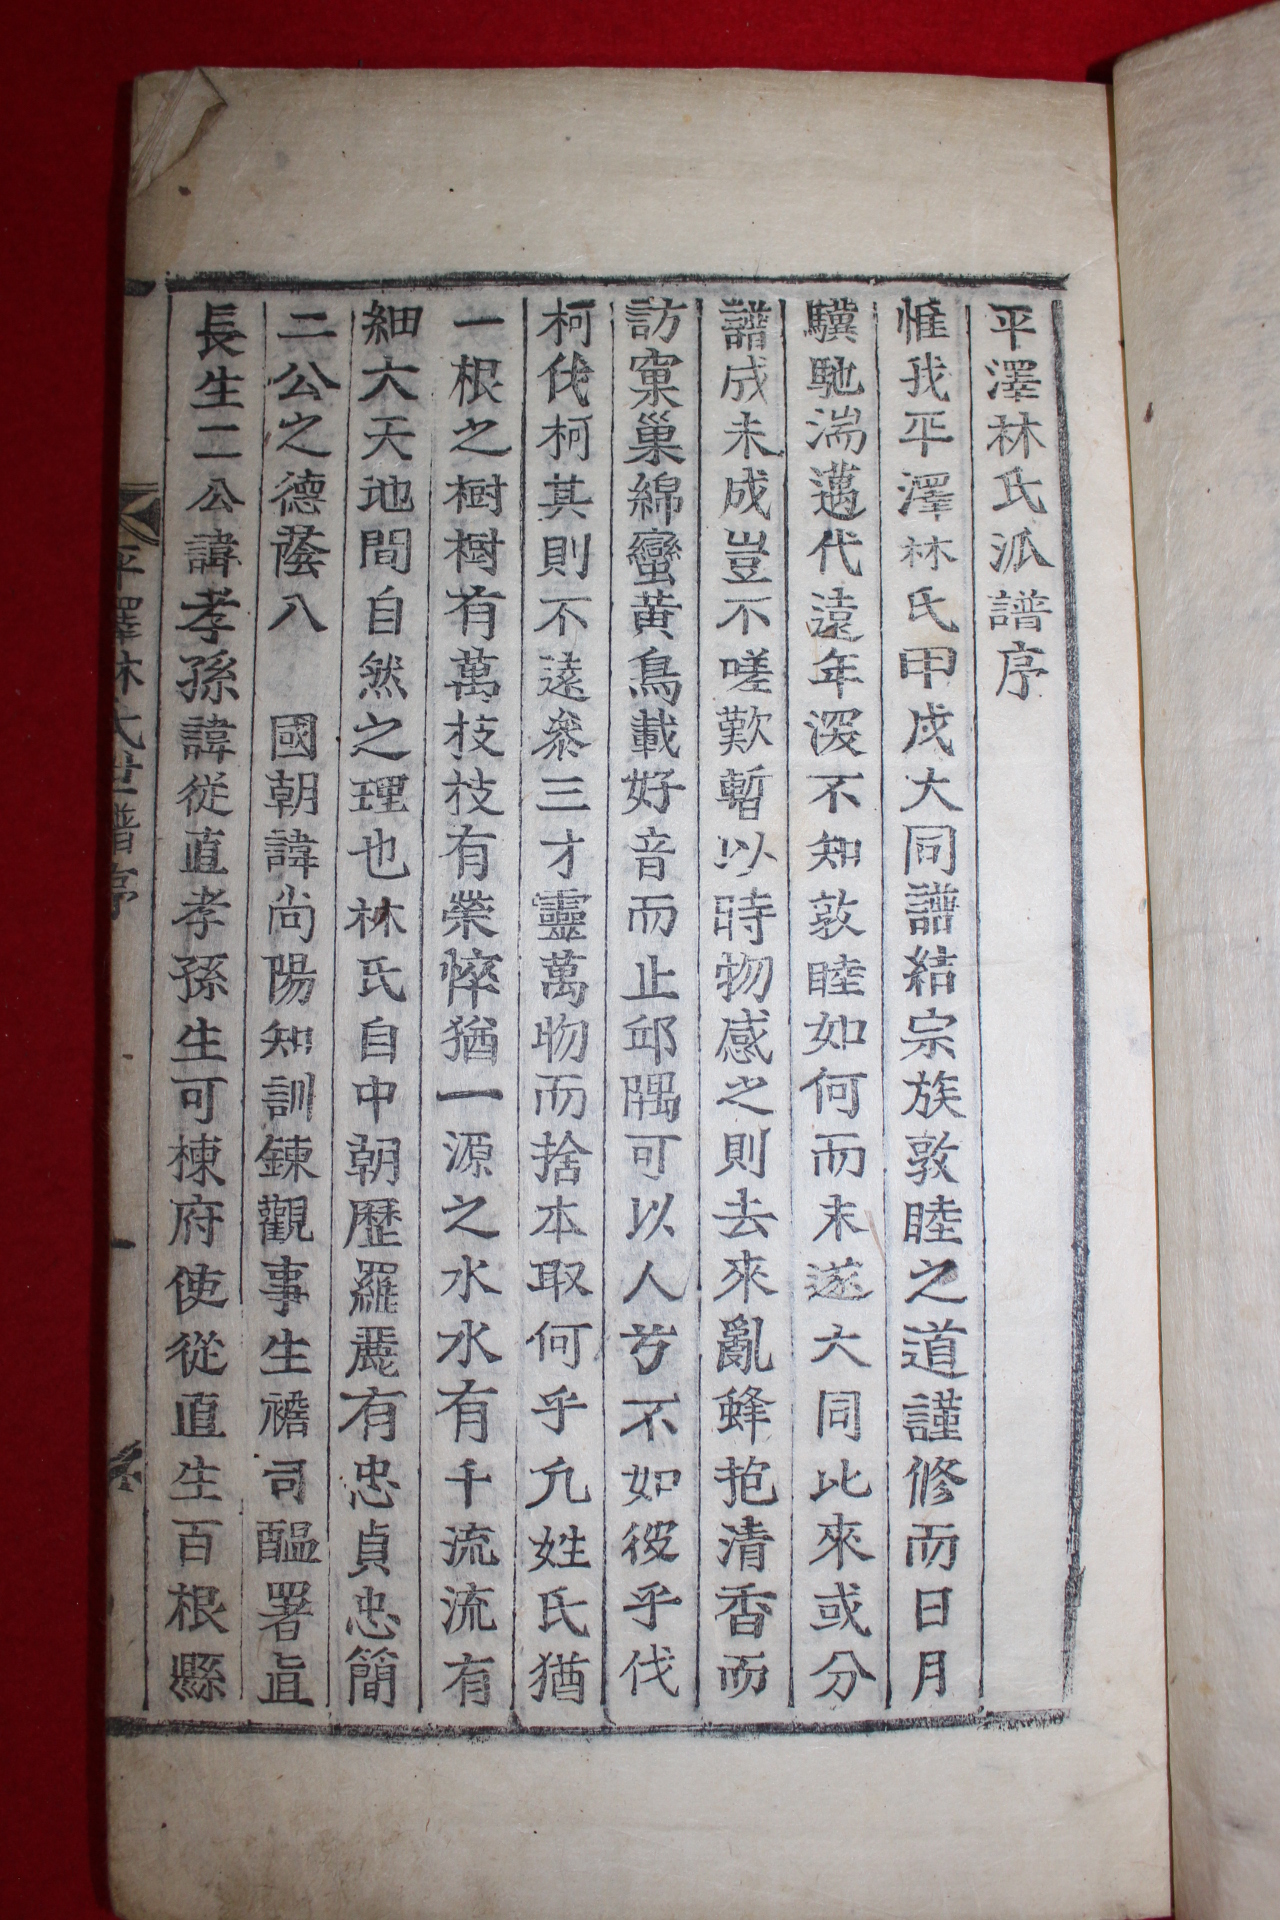 平澤林氏派譜序
惟我平澤林氏甲戌大同譜結宗族敦睦之道謹修而日月
驥馳湍邁代遠年深不知敦睦如何而未遂大同比來或分
譜成未成豈不嗟歎暫以時物感之則去來亂蜂抱清香而
訪窠巢綿蠻黃鳥載好音而止邱隅可以人兮不如彼乎伐
柯伐柯其則不遠參三才靈萬物而捨本取何乎凡姓氏猶
一根之樹樹有萬枝枝有榮悴猶一源之水水有千流流有
細大天地間自然之理也林氏自中朝歷羅麗有忠貞忠簡
二公之德蔭入 國朝諱尚陽知訓鍊觀事生襜司醞署直
長生二公諱孝孫諱從直孝孫生可棟府使從直生百根縣
平澤林氏世譜序
一